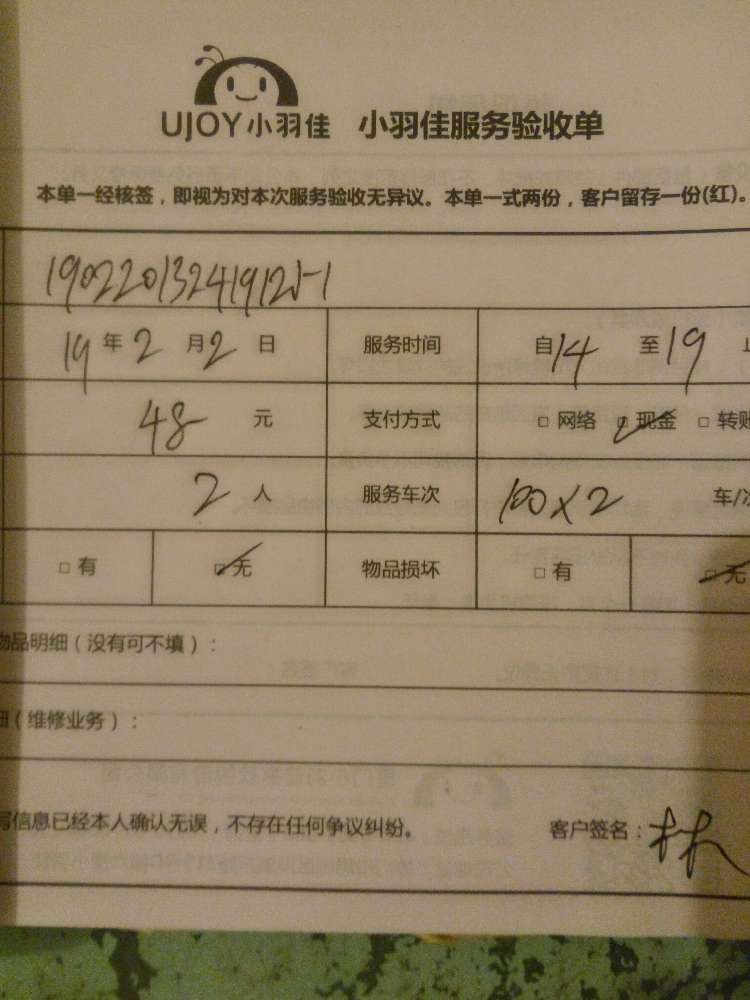 UJOY小羽佳 小羽佳服务验收单
本单一经核签，即视为对本次服务验收无异议。本单一式两份，客户留存一份(红)。
19年2月2日 服务时间 自14 至19
48元 支付方式 □网络 ☑现金 □转账
2人 服务车次 100X2 车/次
□有 ☑无 物品损坏 □有 ☑无
物品明细（没有可不填）：
（维修业务）：
写信息已经本人确认无误，不存在任何争议纠纷。 客户签名：林